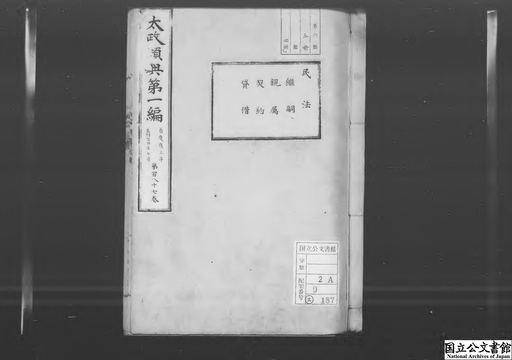 太政類典第一編
第百八十七巻
民法
継嗣
親属
契約
貸借
国立公文書館
分類
配架番号
2 A
9
太 187
国立公文書館
National Archives of Japan